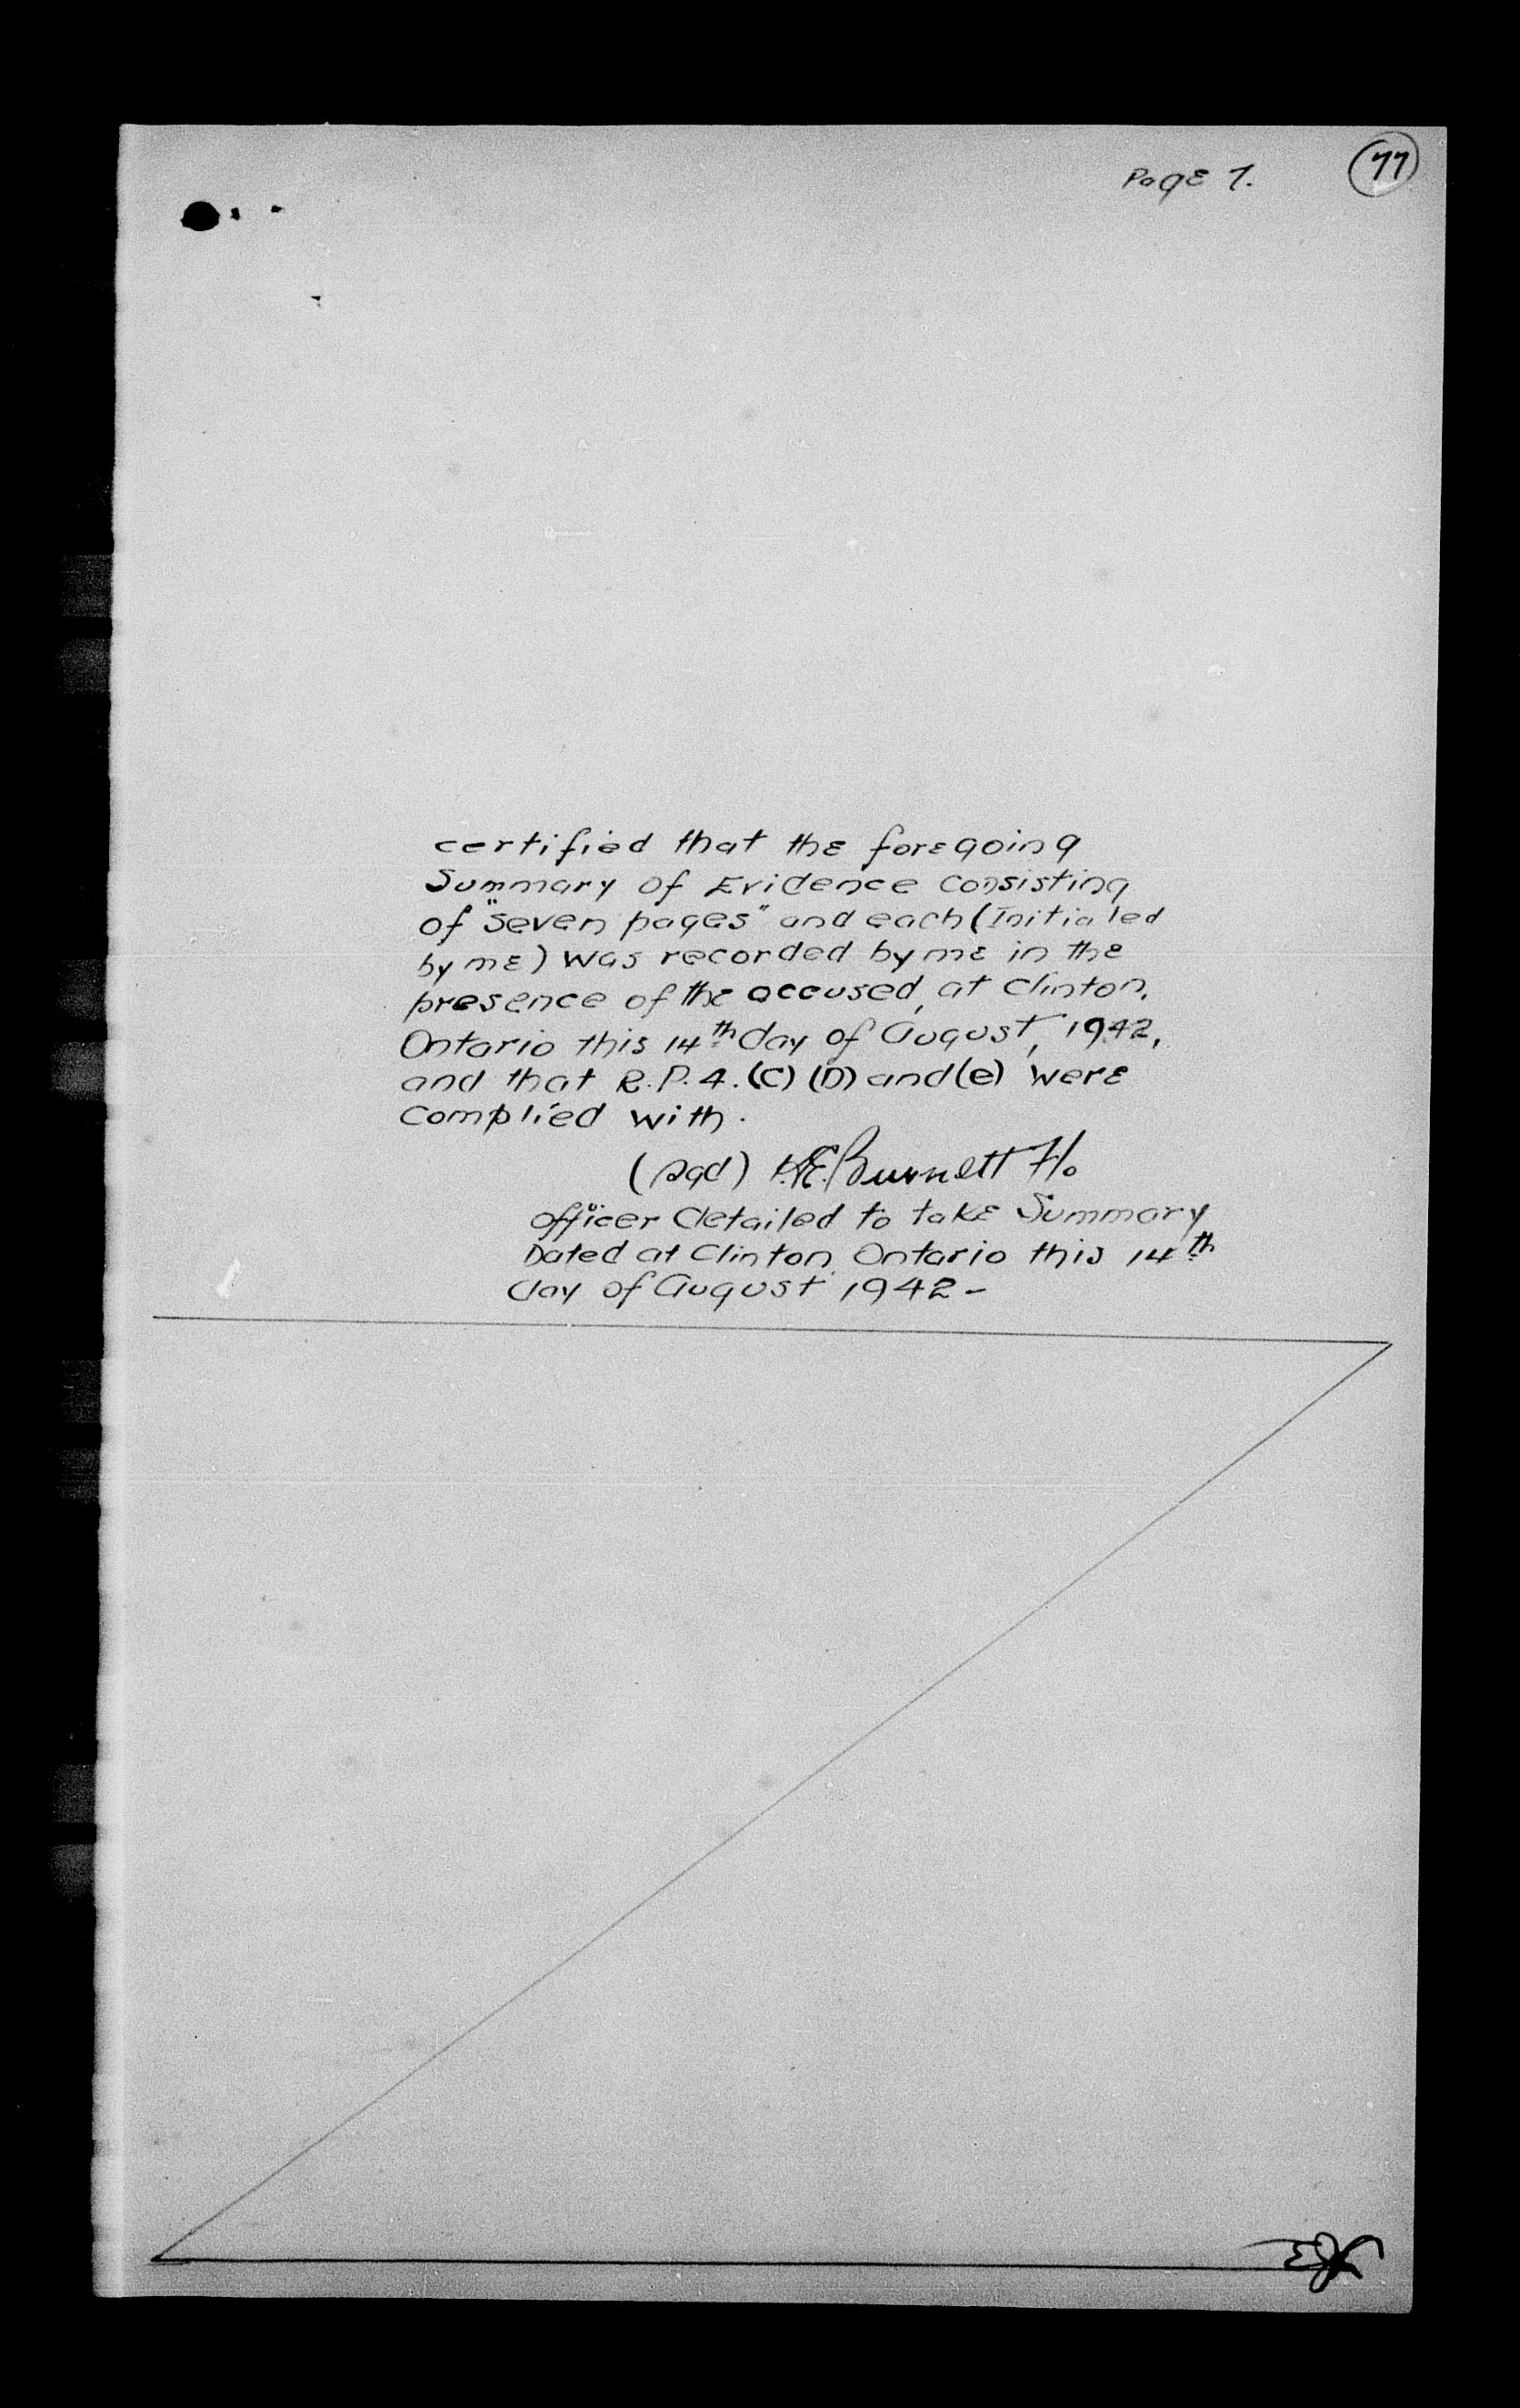 Page 7.
77
certified that the foregoing
Summary of Evidence Consisting
of "seven pages" and each (Initialed
by me) was recorded by me in the
presence of the accused, at Clinton,
Ontario this 14th day of August, 1942,
and that R.P. 4. (C) (D) and (e) were
Complied with.
(sgd) Burnett F/o
officer detailed to take Summary
Dated at Clinton, Ontario this 14th
day of August 1942-